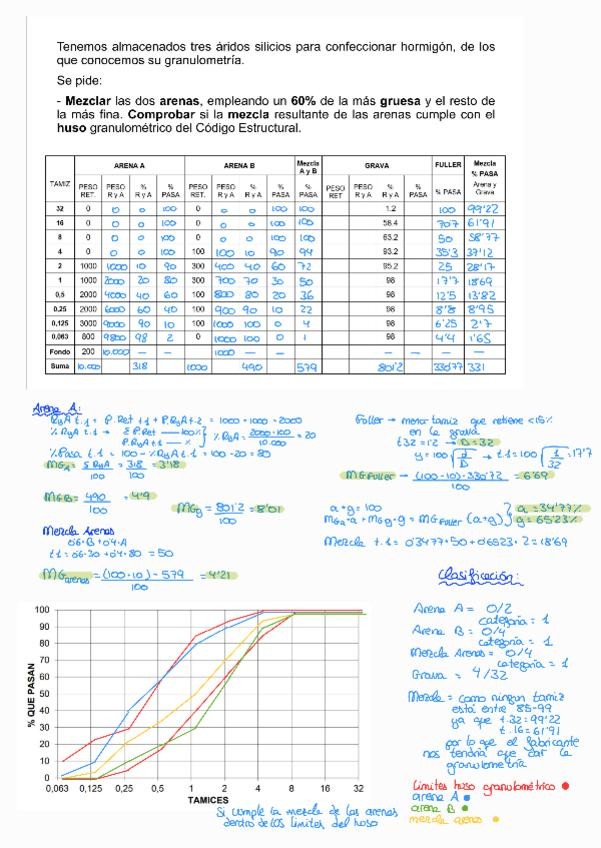 Tenemos almacenados tres áridos silicios para confeccionar hormigón, de los
que conocemos su granulometría.
Se pide:
- Mezclar las dos arenas, empleando un 60% de la más gruesa y el resto de
la más fina. Comprobar si la mezcla resultante de las arenas cumple con el
huso granulométrico del Código Estructural.
TAMIZ ARENA A ARENA B Mezcla A y B GRAVA FULLER Mezcla % PASA Arena y Grava
PESO RET. PESO R y A % R y A % PASA PESO RET. PESO R y A % R y A % PASA % PASA PESO RET PESO R y A % R y A % PASA % PASA
32 0 0 0 100 0 0 0 100 100 1.2 100 99'22
16 0 0 0 100 0 0 0 100 100 58.4 70'7 61'91
8 0 0 0 100 0 0 0 100 100 63.2 50 58'77
4 0 0 0 100 100 100 10 90 94 93.2 35'3 37'12
2 1000 1000 10 90 300 400 40 60 72 95.2 25 28'17
1 1000 2000 20 80 300 700 70 30 50 98 17'7 18'69
0,5 2000 4000 40 60 100 800 80 20 36 98 12'5 13'82
0,25 2000 6000 60 40 100 900 90 10 22 98 8'8 8'95
0,125 3000 9000 90 10 100 1000 100 0 4 98 6'25 2'7
0,063 800 9800 98 2 0 1000 100 0 1 98 4'4 1'65
Fondo 200 10.000 — — 1000 — — — — — —
Suma 10.000 318 1000 490 579 801'2 330'77 331
Arena A:
R y A t.1 = P. Ret t 1 + P.RyA t.2 = 1000 + 1000 = 2000
% RyA t.1 → Σ P.Ret — 100% } % RyA = 2000·100 / 10.000 = 20
P.RyA t.1 — %
% Pasa t.1 = 100 - % RyA t.1 = 100 - 20 = 80
MGA = Σ RyA / 100 = 318 / 100 = 3'18
MGB = 490 / 100 = 4'9
MGg = 801'2 / 100 = 8'01
Mezcla Arenas
0'6·B + 0'4·A
t 1 = 0'6·30 + 0'4·80 = 50
MG arenas = (100·10) - 579 / 100 = 4'21
Fuller → menor tamiz que retiene <15%
en la grava
t 32 = 1'2 → D = 32
y = 100 √ d / D → t.1 = 100 √ 1 / 32 = 17'7
MG Fuller → (100·10) - 330'72 / 100 = 6'69
a + g = 100
MGa·a + MGg·g = MG Fuller (a+g) } a = 34'77% g = 65'23%
Mezcla t.1 = 0'3477·50 + 0'6523·2 = 18'69
Clasificación:
Arena A = 0/2
categoría = 1
Arena B = 0/4
categoría = 1
Mezcla Arenas = 0/4
categoría = 1
Grava = 4/32
Mezcla = como ningun tamiz
está entre 85-99
ya que t.32 = 99'22
t.16 = 61'91
por lo que el fabricante
nos tendría que dar la
granulometría
100
90
80
70
60
50
40
30
20
10
0
% QUE PASAN
0,063 0,125 0,25 0,5 1 2 4 8 16 32
TAMICES
Si cumple la mezcla de las arenas
dentro de los limites del huso
limites huso granulométrico
arena A
arena B
mezcla arenas